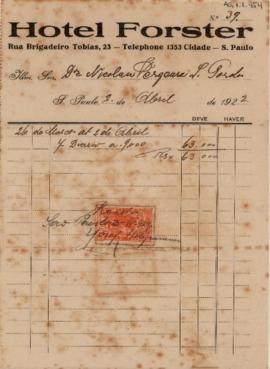 AG.1.1.454
Hotel Forster
N.º 39
Rua Brigadeiro Tobias, 23 — Telephone 1353 Cidade — S. Paulo
Illmo. Snr. Dr. Nicolau Vergueiro
S. Paulo, 2 de Abril de 1922
DEVE HAVER
26 de Março at 2 de Abril
7 Diarias a 9.000 63.000
Rs. 63.000
São Paulo